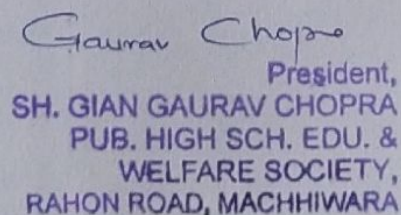 Gaurav Chopra
President,
SH. GIAN GAURAV CHOPRA
PUB. HIGH SCH. EDU. &
WELFARE SOCIETY,
RAHON ROAD, MACHHIWARA